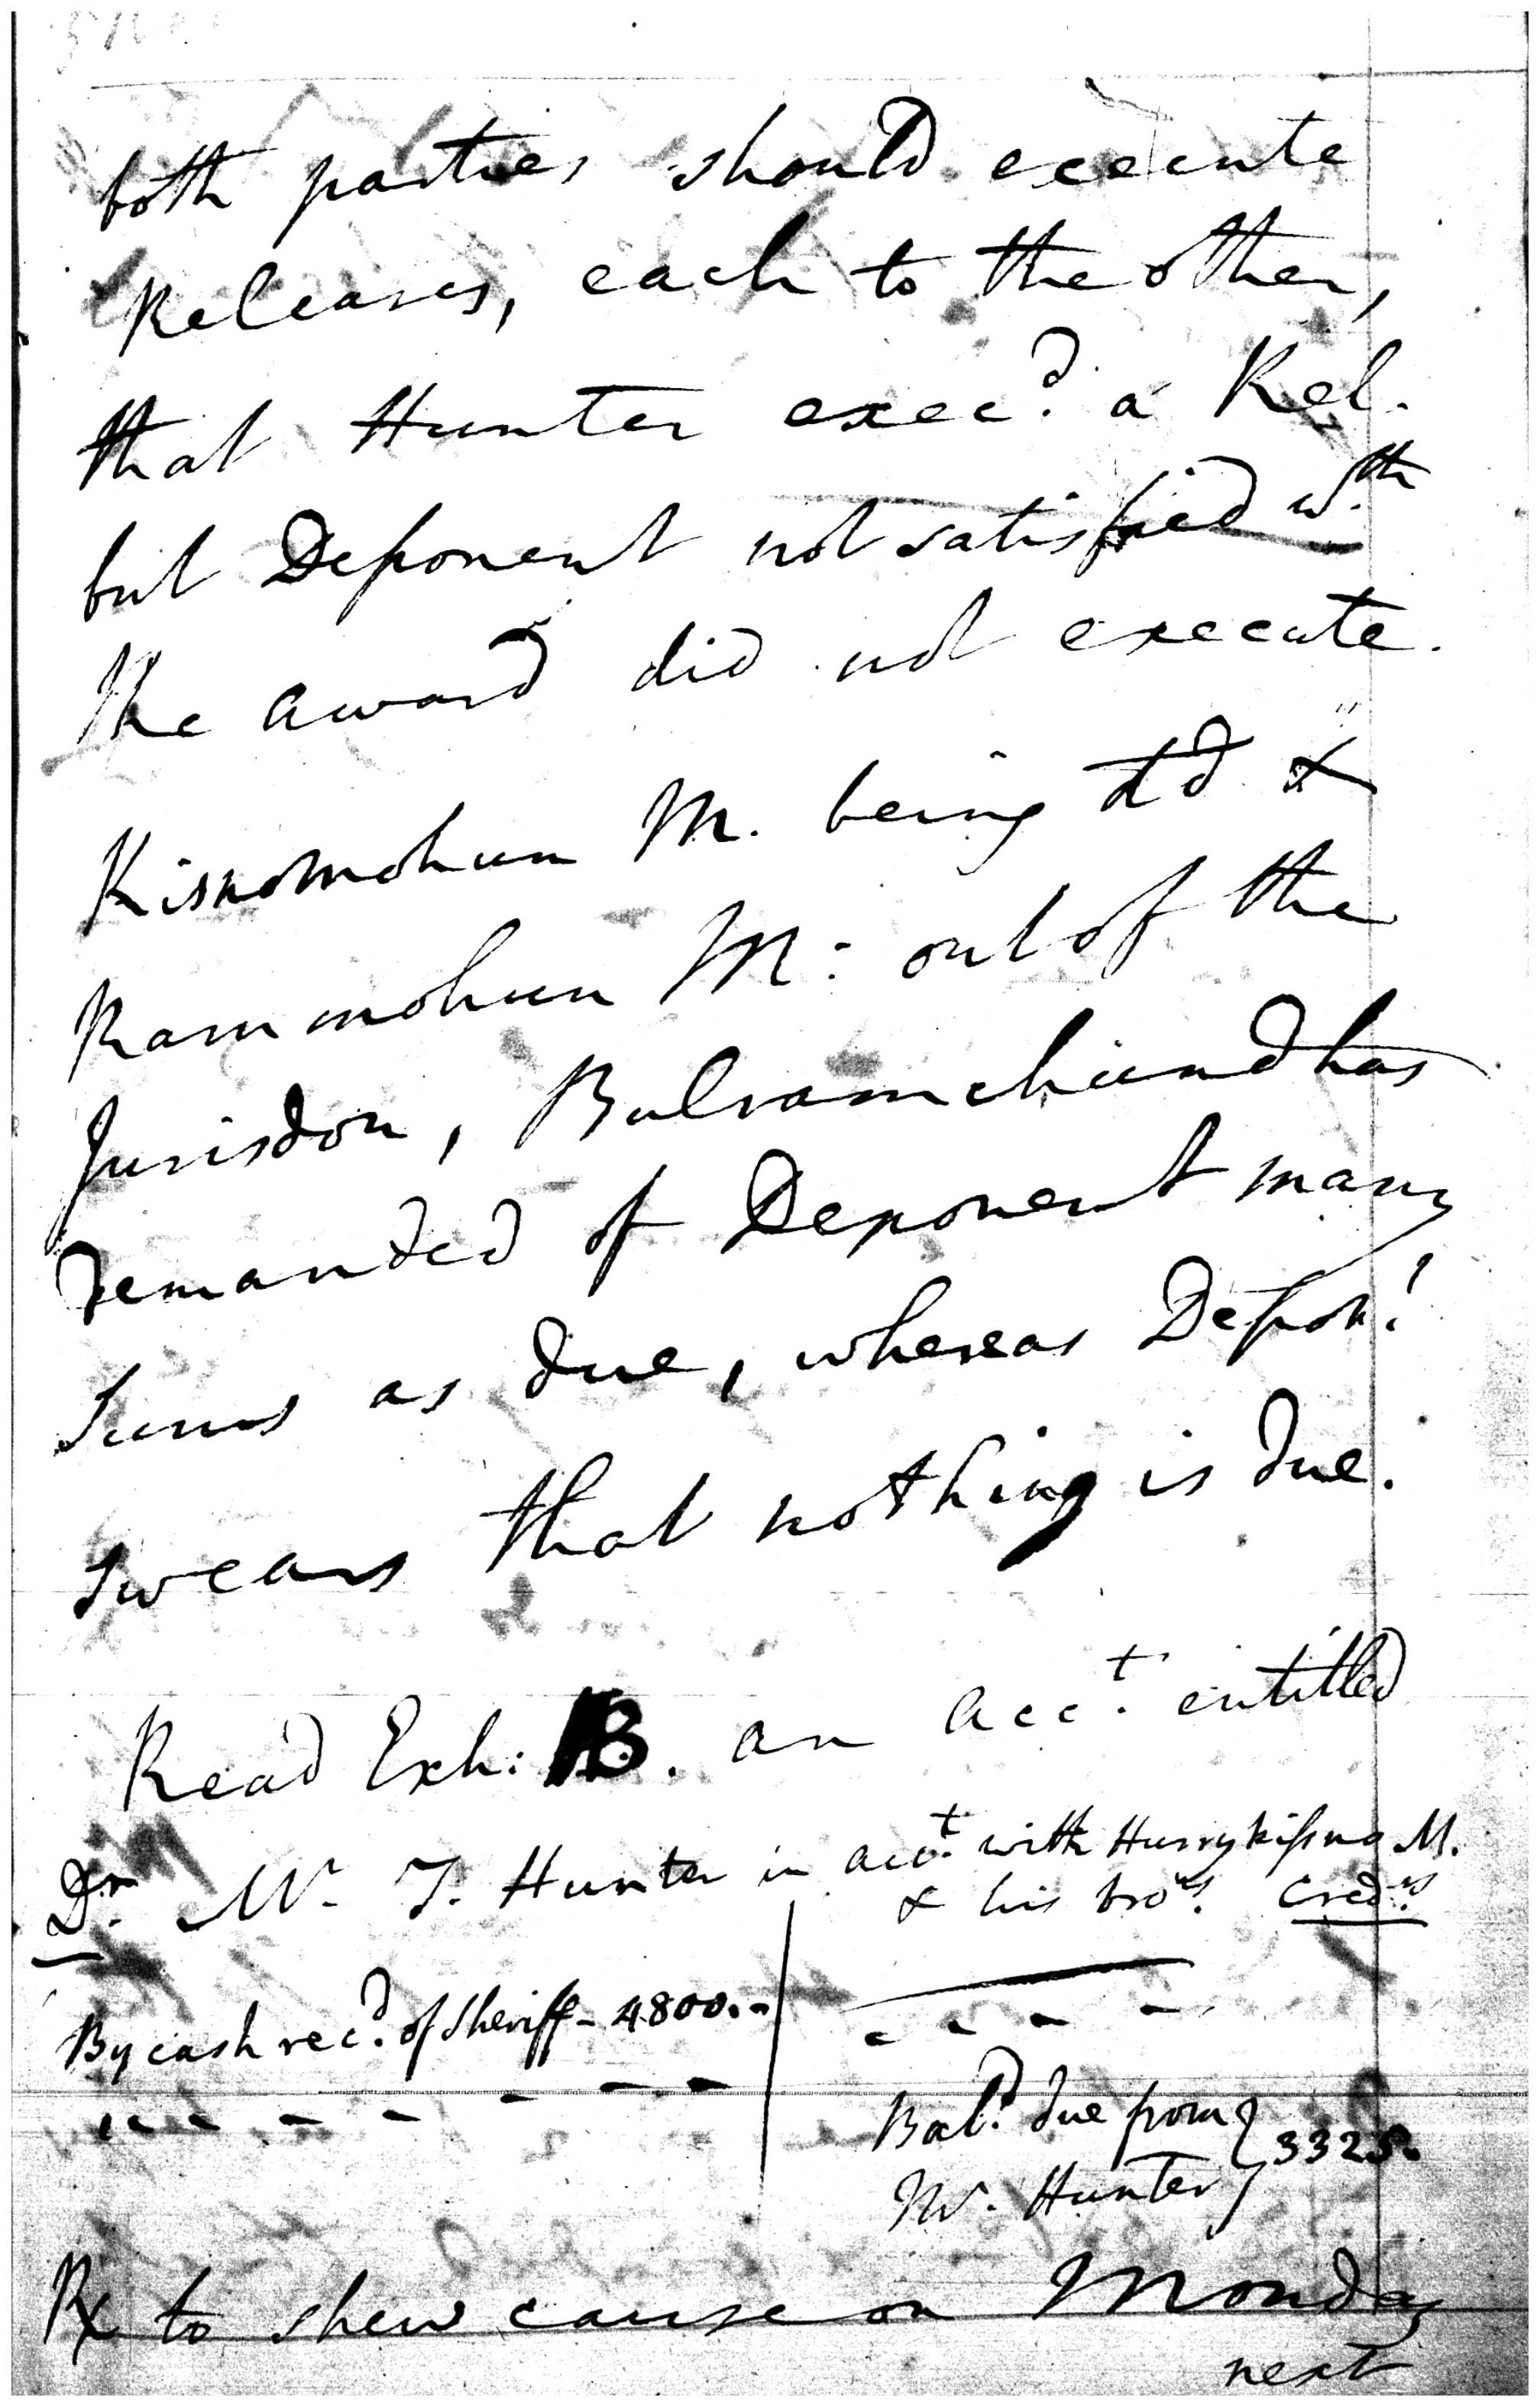 both parties should execute
Releases, each to the other,
that Hunter exec.d a Rel.
but Deponent not satisfied w.th
the award did not execute.
Kisnomohun M. being dd &
Rammohun M: out of the
Jurisdon, Bulramchund has
demanded of Deponent many
Sums as due, whereas Depon.t
swears that nothing is due.
Read Exh: B. an acc.t entitled
Dr. Mr. T. Hunter in acc.t with Hurrykissna M.
& his bro.rs Cred.rs
By cash rec.d of Sheriff - 4800.-
Bal.ce due from } 3325.
Mr. Hunter
Rx to shew cause on Monday
next